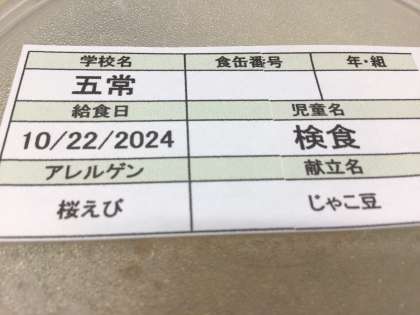 学校名 食缶番号 年・組
五常
給食日 児童名
10/22/2024 検食
アレルゲン 献立名
桜えび じゃこ豆